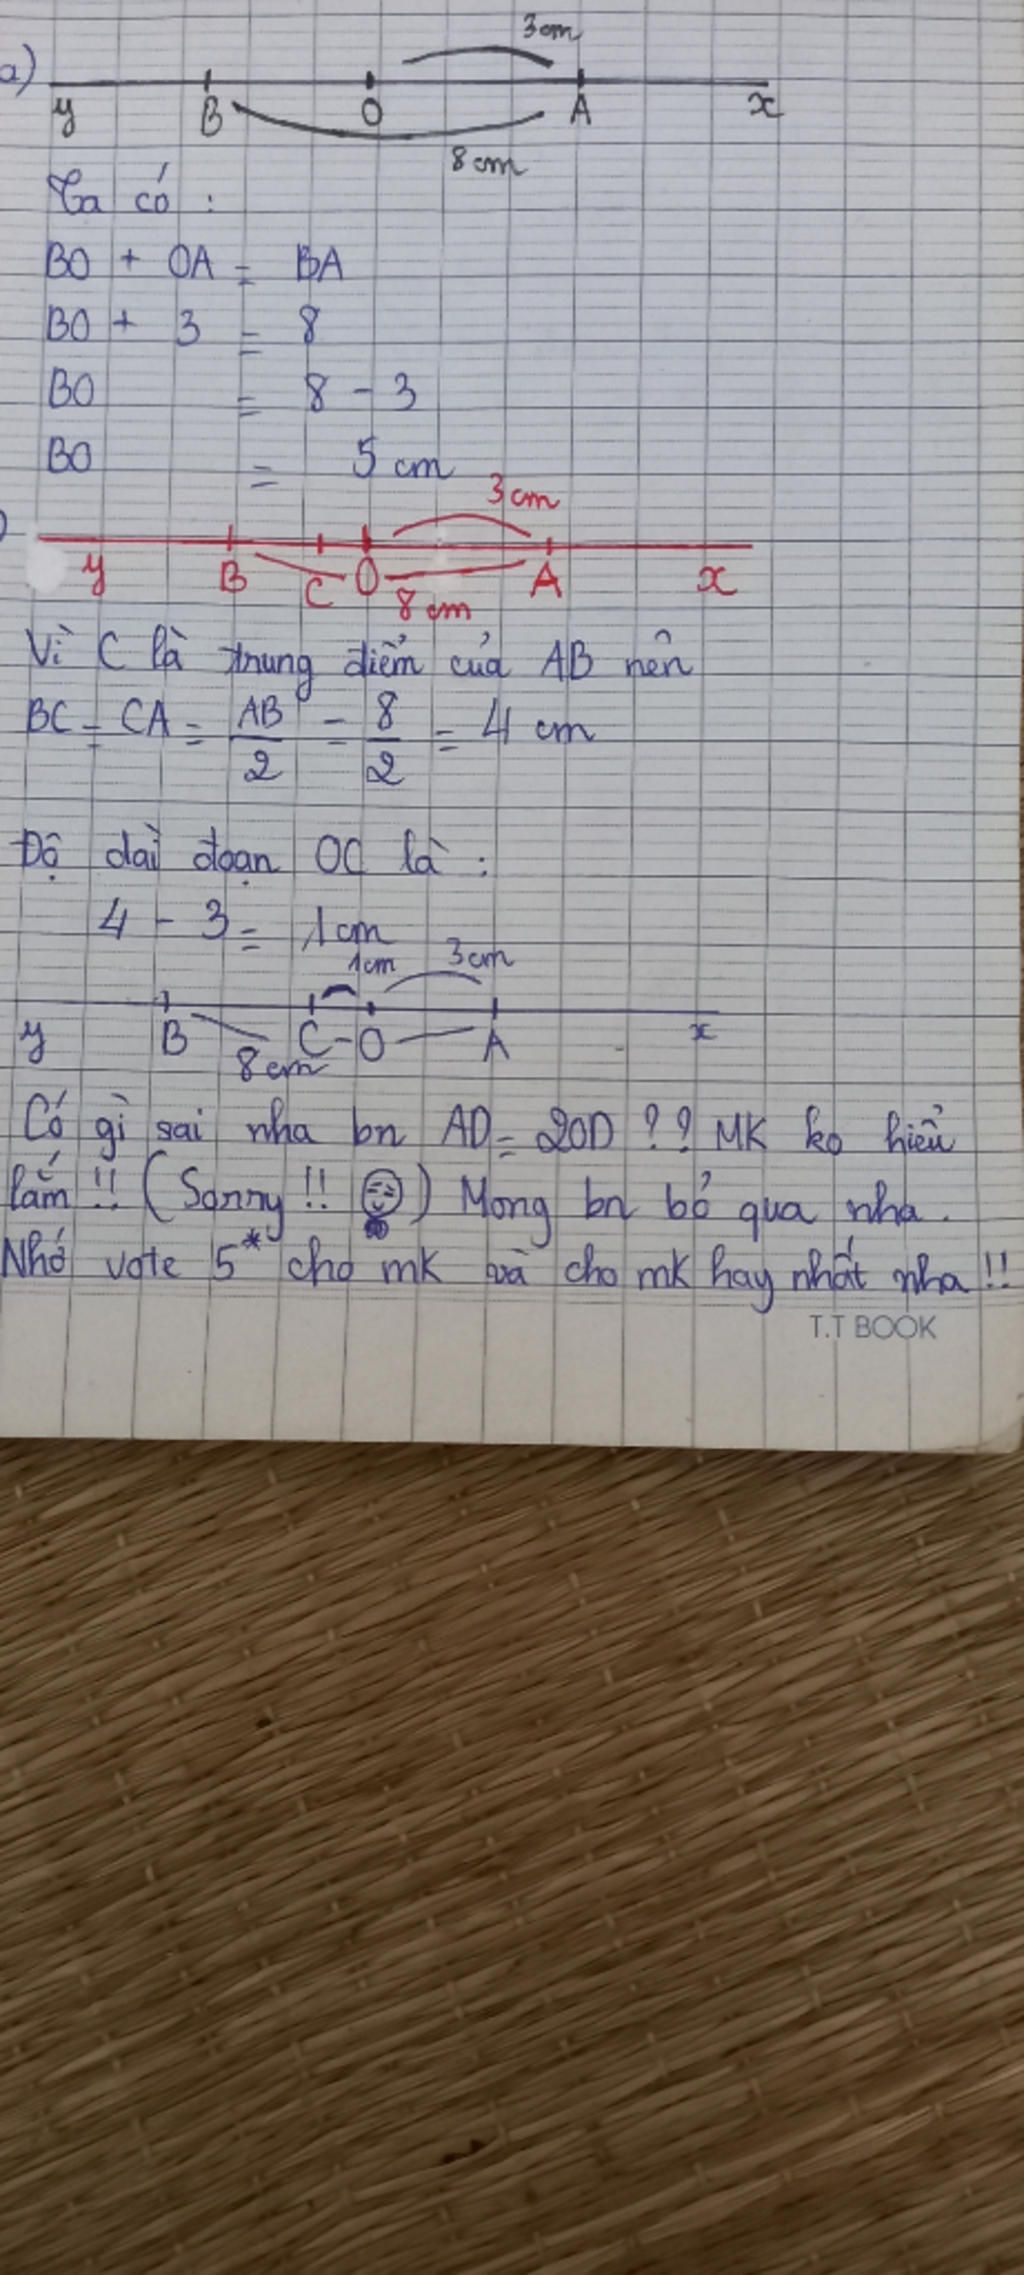 3cm
a)
y B O A x
8cm
Ta có :
BO + OA = BA
BO + 3 = 8
BO = 8 - 3
BO = 5 cm
3cm
y B C O A x
8cm
Vì C là trung điểm của AB nên
BC = CA = AB/2 = 8/2 = 4 cm
Độ dài đoạn OC là :
4 - 3 = 1cm
1cm 3cm
y B C O A x
8cm
Có gì sai nha bn AD = 2OD ?? MK ko hiểu
lắm !! (Sorry !! ) Mong bn bỏ qua nha.
Nhớ vote 5* cho mk và cho mk hay nhất nha !!
T.T BOOK